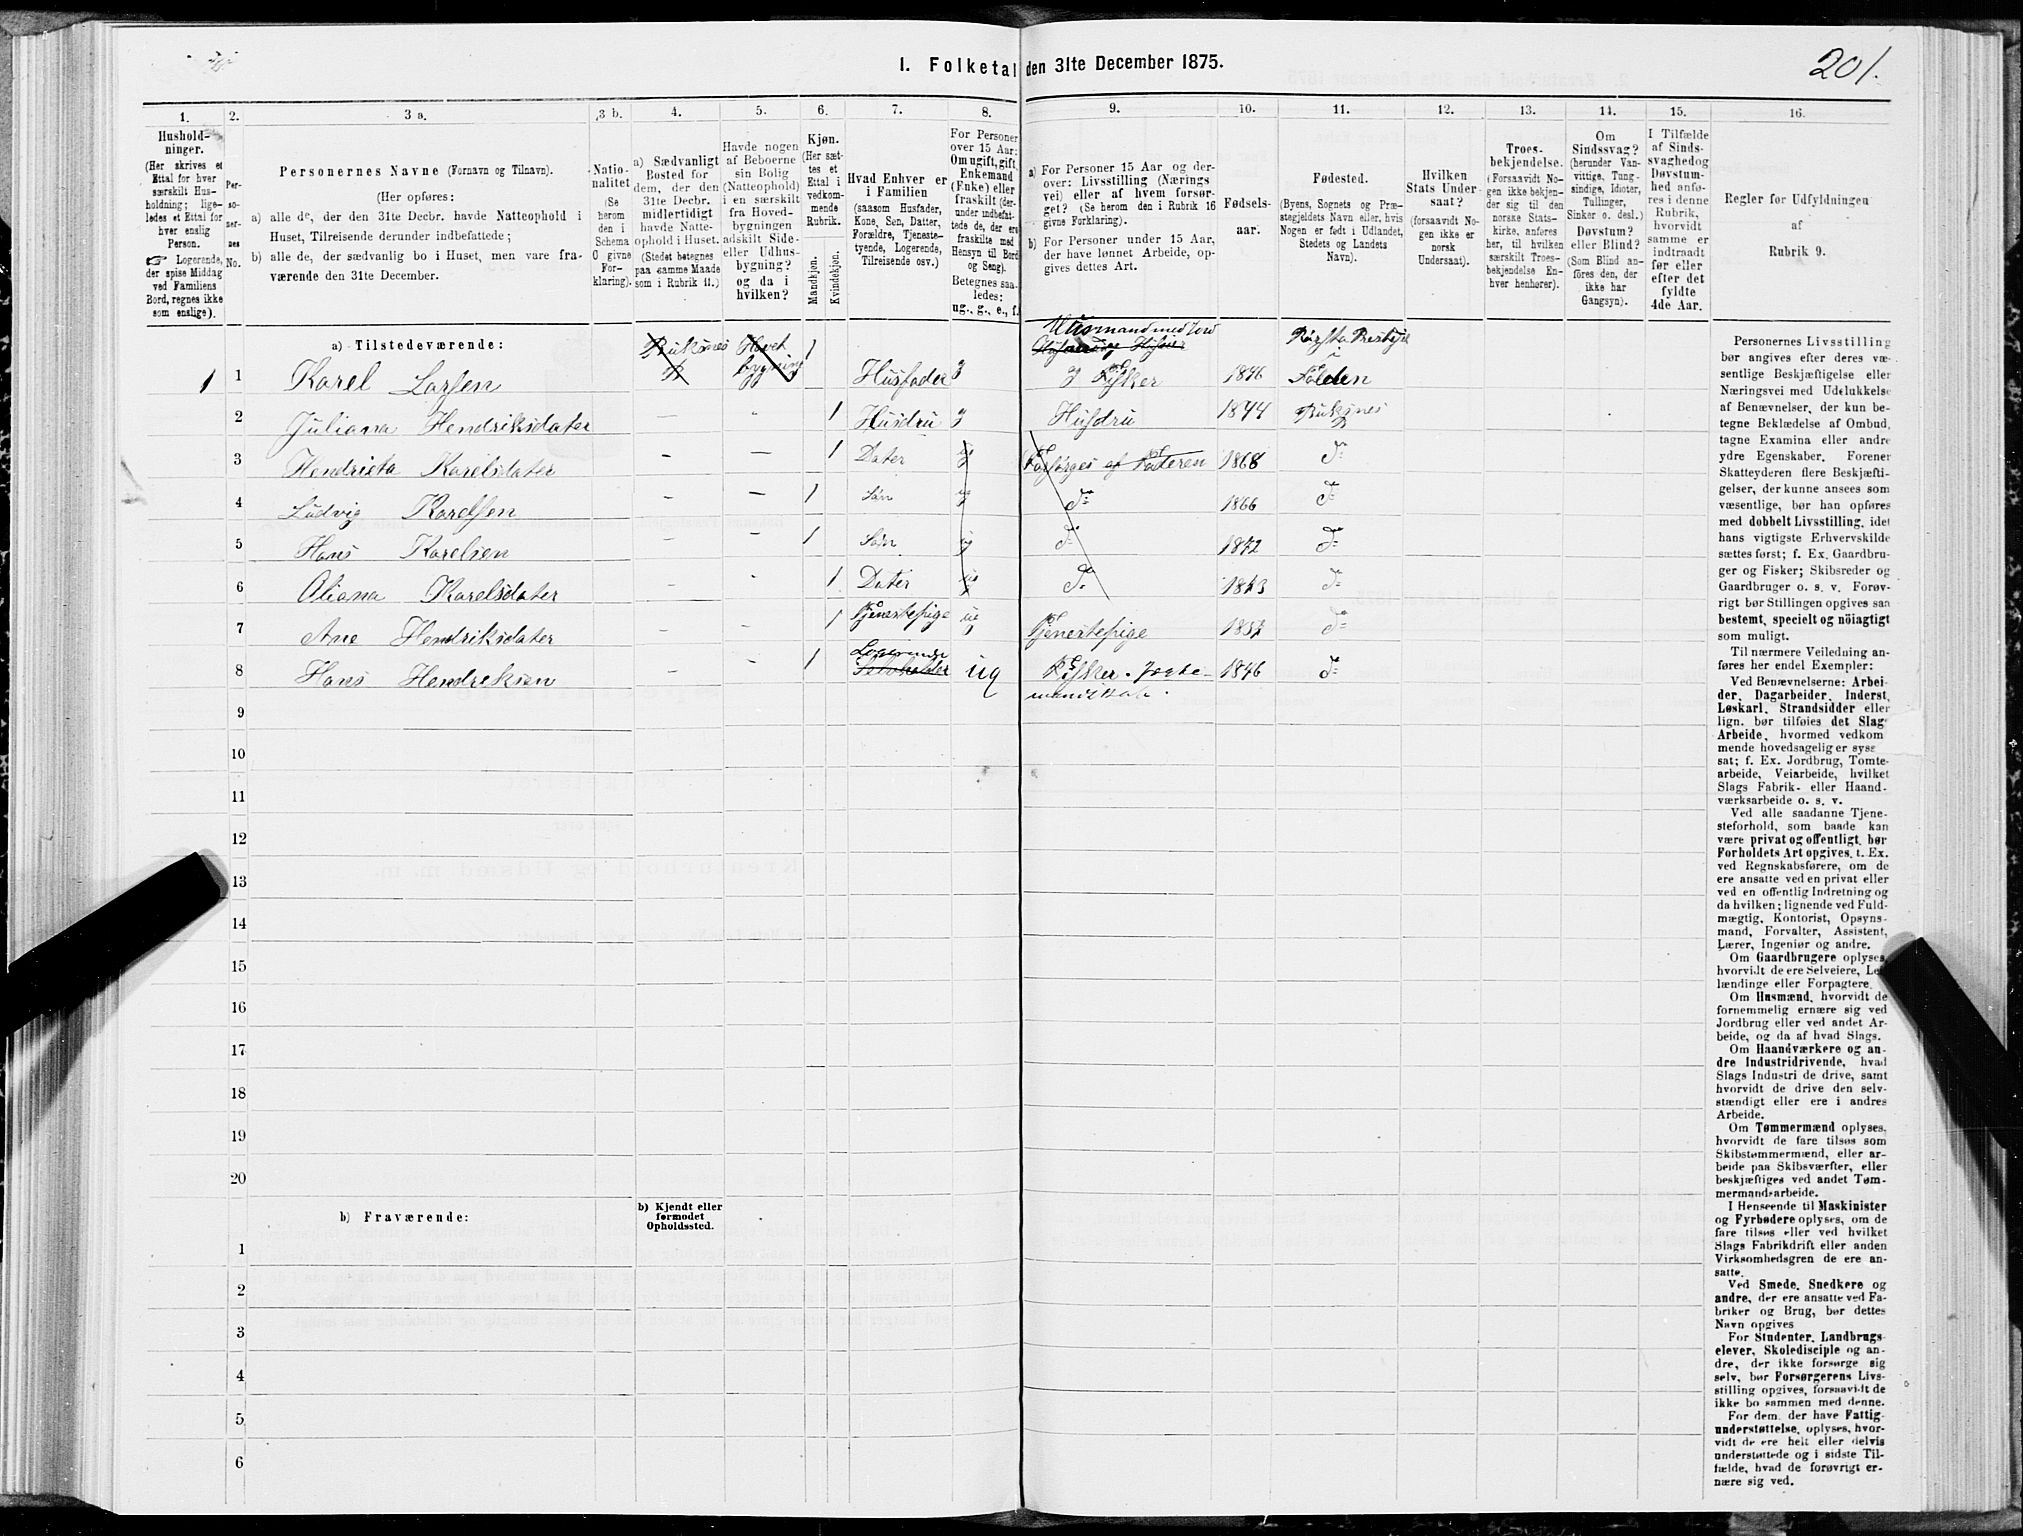 201.
I. Folketal den 31te December 1875.
1. 2. 3 a. 3 b. 4. 5. 6. 7. 8. 9. 10. 11. 12. 13. 14. 15. 16.
Hushold-
ninger.
(Her skrives et
Ettal for hver
særskilt Hus-
holdning; lige-
ledes et Ettal for
hver enslig
Person.
☞ Logerende,
der spise Middag
ved Familiens
Bord, regnes ikke
som enslige).
Per-
so-
ner-
nes
No.
Personernes Navne (Fornavn og Tilnavn).
(Her opføres:
a) alle de, der den 31te Decbr. havde Natteophold i
Huset, Tilreisende derunder indbefattede;
b) alle de, der sædvanlig bo i Huset, men vare fra-
værende den 31te December.
Natio-
nalitet
(Se
herom
den i
Schema
O givne
For-
klaring).
a) Sædvanligt
Bosted for
dem, der den
31te Decbr.
midlertidigt
havde Natte-
ophold i Huset.
(Stedet betegnes
paa samme Maade
som i Rubrik 11.)
Havde nogen
af Beboerne
sin Bolig
(Natteophold)
i en særskilt
fra Hoved-
bygningen
adskilt Side-
eller Udhus-
bygning?
og da i
hvilken?
Kjøn.
(Her sæt-
tes et
Ettal i
vedkom-
mende
Rubrik.
Mandkjøn.
Kvindekjøn.
Hvad Enhver er
i Familien
(saasom Husfader,
Kone, Søn, Datter,
Forældre, Tjeneste-
tyende, Logerende,
Tilreisende osv.)
For Personer
over 15 Aar:
Om ugift, gift,
Enkemand
(Enke) eller
fraskilt (der-
under indbefat-
tede de, der ere
fraskilte med
Hensyn til Bord
og Seng).
Betegnes saa-
ledes:
ug., g., e., f.
a) For Personer 15 Aar og der-
over: Livsstilling (Nærings
vei) eller af hvem forsør-
get? (Se herom den i Rubrik 16
givne Forklaring).
b) For Personer under 15 Aar,
der have lønnet Arbeide, op-
gives dettes Art.
Fødsels-
aar.
Fødested.
(Byens, Sognets og Præ-
stegjeldets Navn eller, hvis
Nogen er født i Udlandet,
Stedets og Landets
Navn).
Hvilken
Stats Under-
saat?
(forsaavidt No-
gen ikke er
norsk
Undersaat).
Troes-
bekjendelse.
(Forsaavidt No-
gen ikke bekjen-
der sig til den
norske Stats-
kirke, anføres
her, til hvilken
særskilt Troes-
bekjendelse En-
hver henhører).
Om
Sindssvag?
(herunder Van-
vittige, Tung-
sindige, Idioter,
Tullinger,
Sinker o. desl.)
Døvstum?
eller Blind?
(Som Blind an-
føres den, der
ikke har
Gangsyn).
I Tilfælde
af Sinds-
svaghed og
Døvstum-
hed anfø-
res i denne
Rubrik,
hvorvidt
samme er
indtraadt
før eller
efter det
fyldte
4de Aar.
Regler for Udfyldningen
af
Rubrik 9.
a) Tilstedeværende:
Husmand med Jord
1 1 Karel Larsen 1 Husfader g Fisker 1846 i Folden
2 Juliana Hendriksdater — " 1 Husdru g Husdru 1844
3 Hendricta Karelsdater — — 1 Dater ug Forsørges af Faderen 1868 do
4 Ludvig Karelsen — — 1 Søn ug do 1866 do
5 Hans Karelsen — — 1 Søn ug do 1872 do
6 Oliana Karelsdater — " 1 Dater ug do 1873 do
7 Ane Hendriksdater — — 1 Tjenestepige ug Tjenestepige 1857 do
Logerende
8 Hans Hendreksen — " 1 ug Fisker. 1846 do
9
10
11
12
13
14
15
16
17
18
19
20
b) Fraværende:
b) Kjendt eller
formodet
Opholdssted.
1
2
3
4
5
6
Personernes Livsstilling
bør angives efter deres væ-
sentlige Beskjæftigelse eller
Næringsvei med Udelukkelse
af Benævnelser, der kun be-
tegne Beklædelse af Ombud,
tagne Examina eller andre
ydre Egenskaber. Forener
Skatteyderen flere Beskjæfti-
gelser, der kunne ansees som
væsentlige, bør han opføres
med dobbelt Livsstilling, idet
hans vigtigste Erhvervskilde
sættes først; f. Ex. Gaardbru-
ger og Fisker; Skibsreder og
Gaardbruger o. s. v. Forøv-
rigt bør Stillingen opgives saa
bestemt, specielt og nöiagtigt
som muligt.
Til nærmere Veiledning an-
føres her endel Exempler:
Ved Benævnelserne: Arbei-
der, Dagarbeider, Inderst,
Løskarl, Strandsidder eller
lign. bør tilføies det Slags
Arbeide, hvormed vedkom
mende hovedsagelig er syssel
sat; f. Ex. Jordbrug, Tomte-
arbeide, Veiarbeide, hvilket
Slags Fabrik- eller Haand-
værksarbeide o. s. v.
Ved alle saadanne Tjene-
steforhold, som baade kan
være privat og offentligt, bør
Forholdets Art opgives, t. Ex.
ved Regnskabsførere, om de
ere ansatte ved en privat eller
ved en offentlig Indretning og
da hvilken; lignende ved Fuld-
mægtig, Kontorist, Opsyns-
mand, Forvalter, Assistent,
Lærer, Ingeniør og andre.
Om Gaardbrugere oplyses,
hvorvidt de ere Selveiere, Lei-
lændinge eller Forpagtere.
Om Husmænd, hvorvidt de
fornemmelig ernære sig ved
Jordbrug eller ved andet Ar-
beide, og da af hvad Slags.
Om Haandværkere og an-
dre Industridrivende, hvad
Slags Industri de drive, samt
hvorvidt de drive den selv-
stændigt eller ere i andres
Arbeide.
Om Tømmermænd oplyses,
hvorvidt de fare tilsøs som
Skibstømmermænd, eller ar-
beide paa Skibsværfter, eller
beskjæftiges ved andet Tøm-
mermandsarbeide.
I Henseende til Maskinister
og Fyrbødere oplyses, om de
fare tilsøs eller ved hvilket
Slags Fabrikdrift eller anden
Virksomhedsgren de ere an-
satte.
Ved Smede, Snedkere og
andre, der ere ansatte ved Fa-
briker og Brug, bør dettes
Navn opgives
For Studenter, Landbrugs-
elever, Skoledisciple og an-
dre, der ikke forsørge sig
selv, bør Forsørgerens Livs-
stilling opgives, forsaavidt de
ikke bo sammen med denne.
For dem, der have Fattig-
understøttelse, oplyses, hvor-
vidt de ere helt eller delvis
understøttede og i sidste Til-
fælde, hvad de forøvrigt er-
nære sig ved.